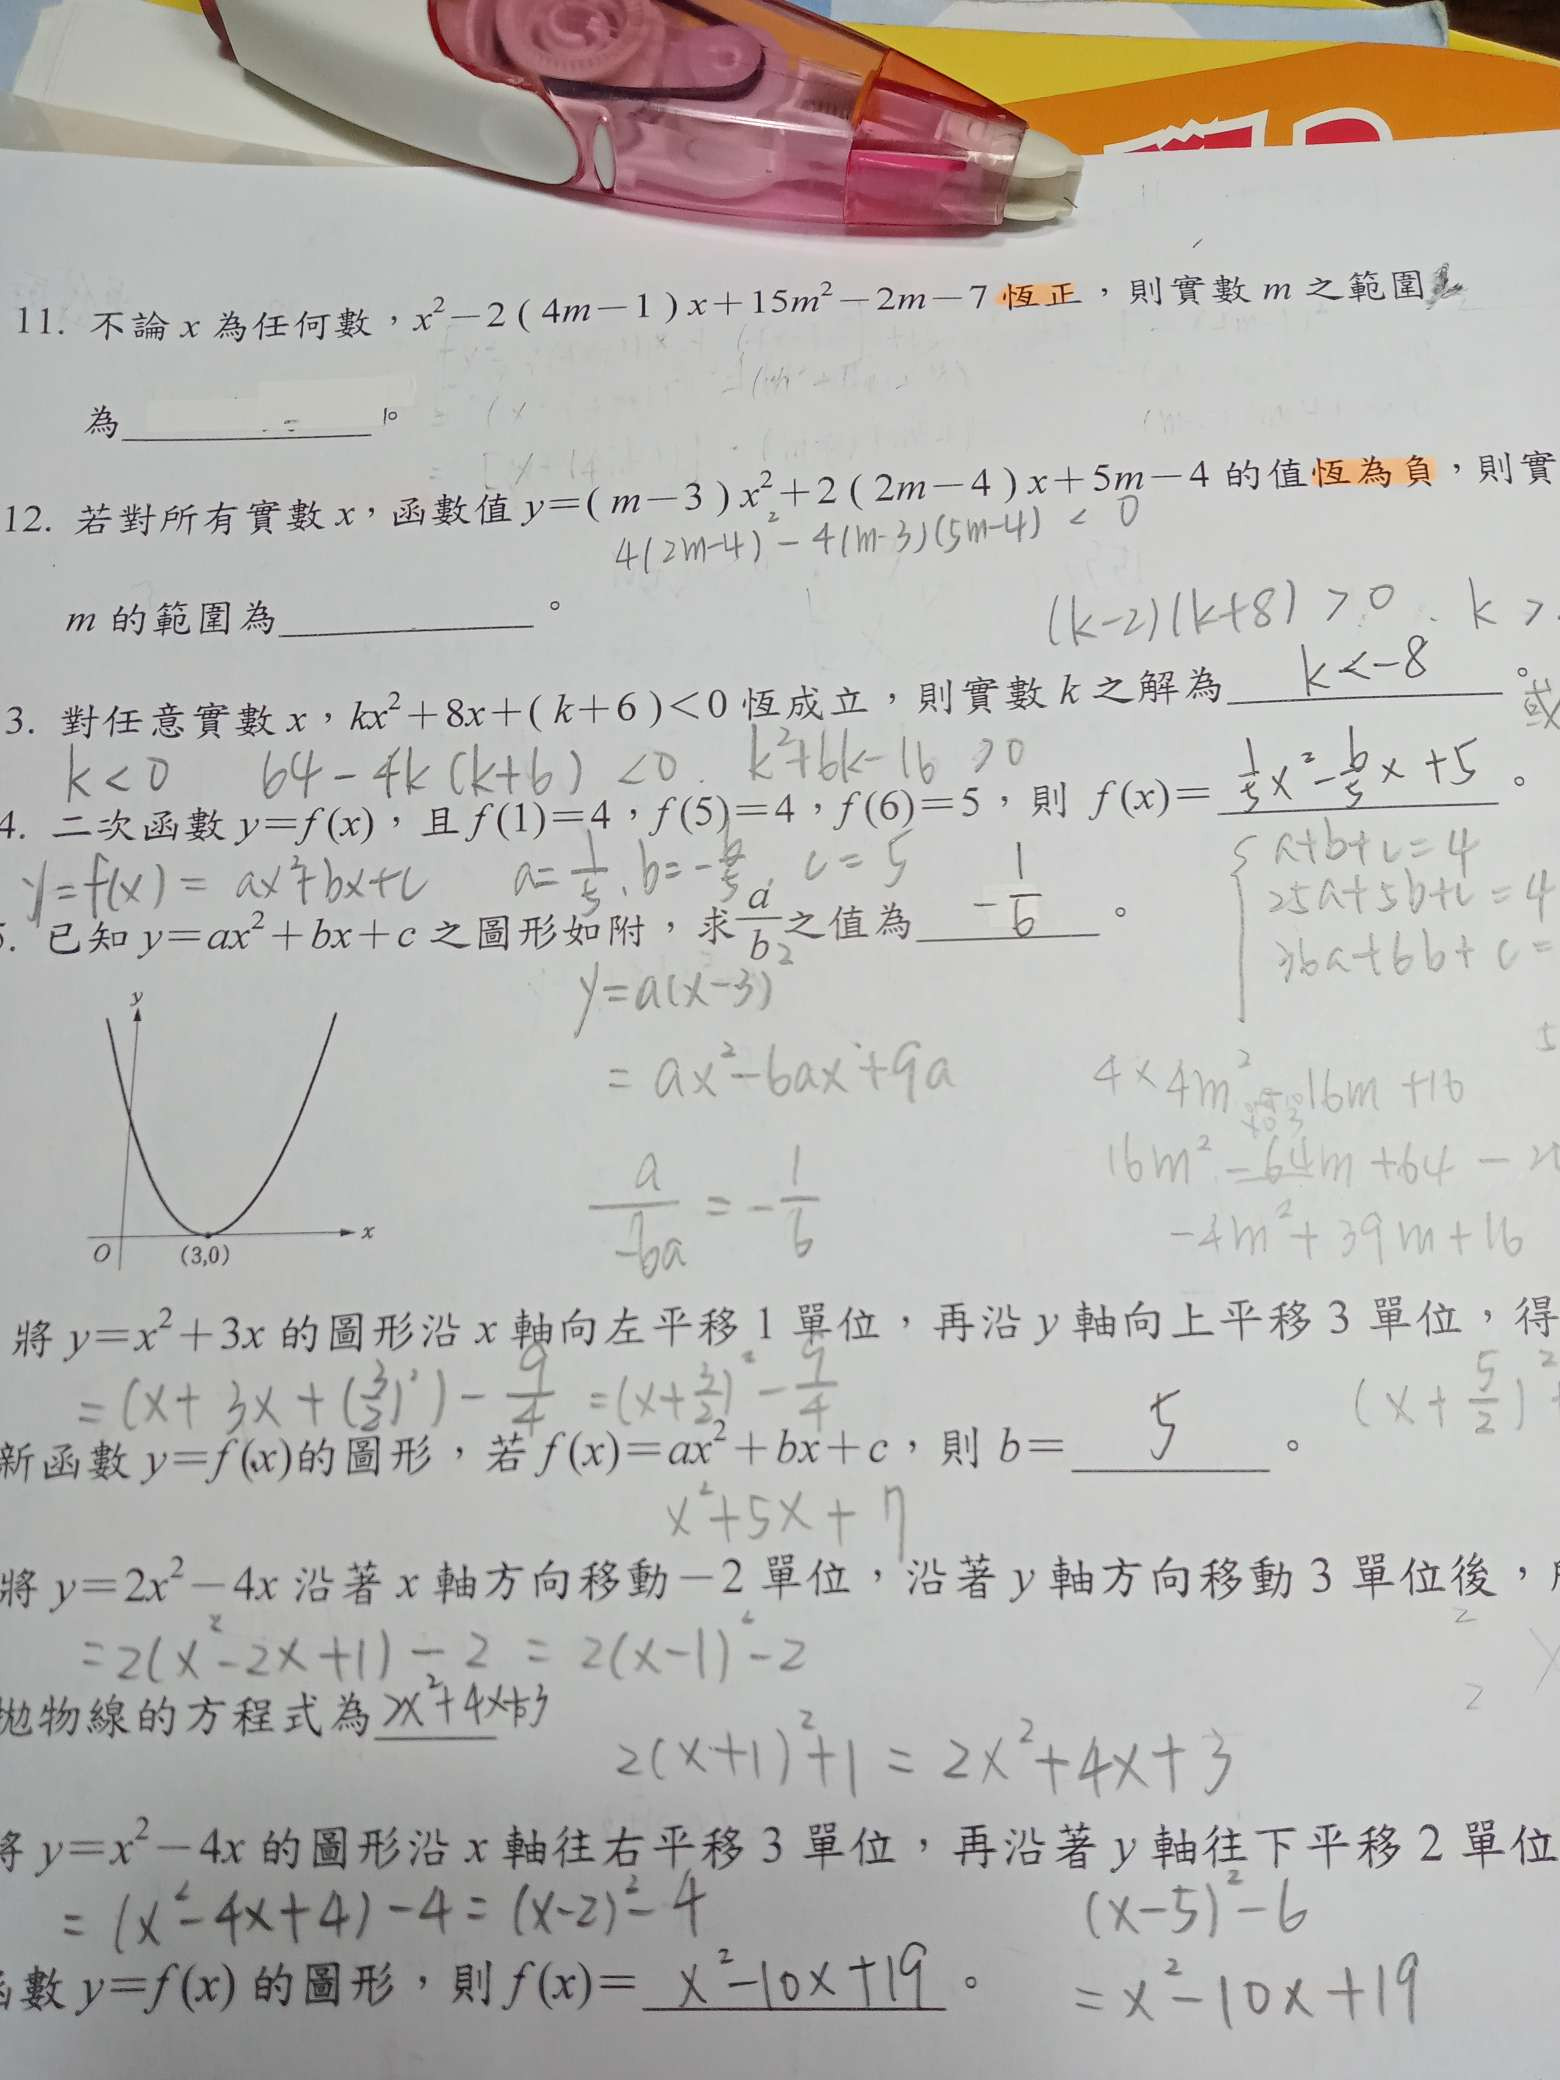 11. 不論 x 為任何數，x²－2(4m－1)x＋15m²－2m－7 恆正，則實數 m 之範圍
為＿＿＿＿。
12. 若對所有實數 x，函數值 y＝(m－3)x²＋2(2m－4)x＋5m－4 的值恆為負，則實
4(2m-4)²-4(m-3)(5m-4) < 0
m 的範圍為＿＿＿＿。
(k-2)(k+8) > 0 . k >
3. 對任意實數 x，kx²＋8x＋(k＋6)＜0 恆成立，則實數 k 之解為 k<-8 。
或
k<0 64-4k(k+6) <0 . k²+6k-16 >0
4. 二次函數 y＝f(x)，且 f(1)＝4，f(5)＝4，f(6)＝5，則 f(x)＝ 1/5x²-6/5x+5 。
y=f(x)= ax²+bx+c a=1/5, b=-6/5, c=5
a+b+c=4
25a+5b+c=4
36a+6b+c=
5. 已知 y＝ax²＋bx＋c 之圖形如附，求 a/b 之值為 -1/6 。
y=a(x-3)²
= ax²-6ax+9a
a/-6a = -1/6
y
O
(3,0)
x
4×4m²-16m+16
16m²-64m+64-2
-4m²+39m+16
將 y＝x²＋3x 的圖形沿 x 軸向左平移 1 單位，再沿 y 軸向上平移 3 單位，得
=(x+3x+(3/2)²)-9/4 =(x+3/2)²-9/4
(x+5/2)²
新函數 y＝f(x)的圖形，若 f(x)＝ax²＋bx＋c，則 b＝ 5 。
x²+5x+7
將 y＝2x²－4x 沿著 x 軸方向移動－2 單位，沿著 y 軸方向移動 3 單位後，
=2(x²-2x+1)-2 = 2(x-1)²-2
拋物線的方程式為 2x²+4x+3
2(x+1)²+1 = 2x²+4x+3
將 y＝x²－4x 的圖形沿 x 軸往右平移 3 單位，再沿著 y 軸往下平移 2 單位
=(x²-4x+4)-4=(x-2)²-4
(x-5)²-6
函數 y＝f(x) 的圖形，則 f(x)＝ x²-10x+19 。
=x²-10x+19